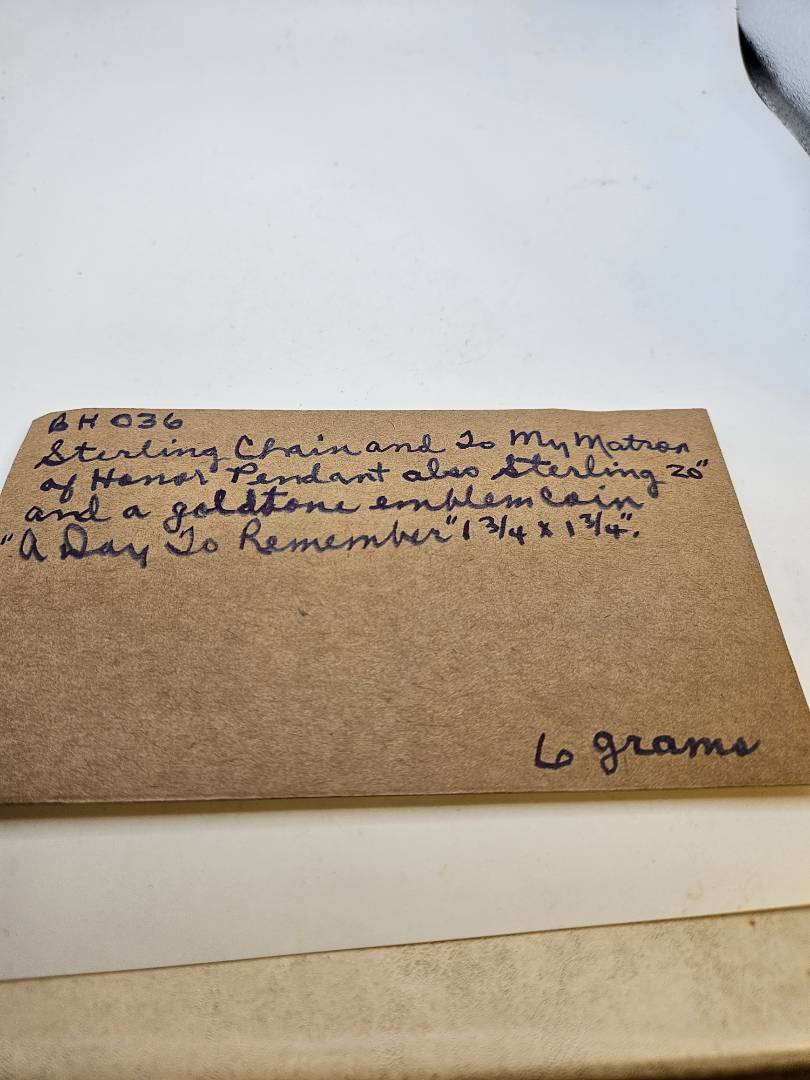 BH 036
Sterling Chain and To My Matron
of Honor Pendant also Sterling 20"
and a goldtone emblem coin
"A Day To Remember" 1 3/4 x 1 3/4".
6 grams